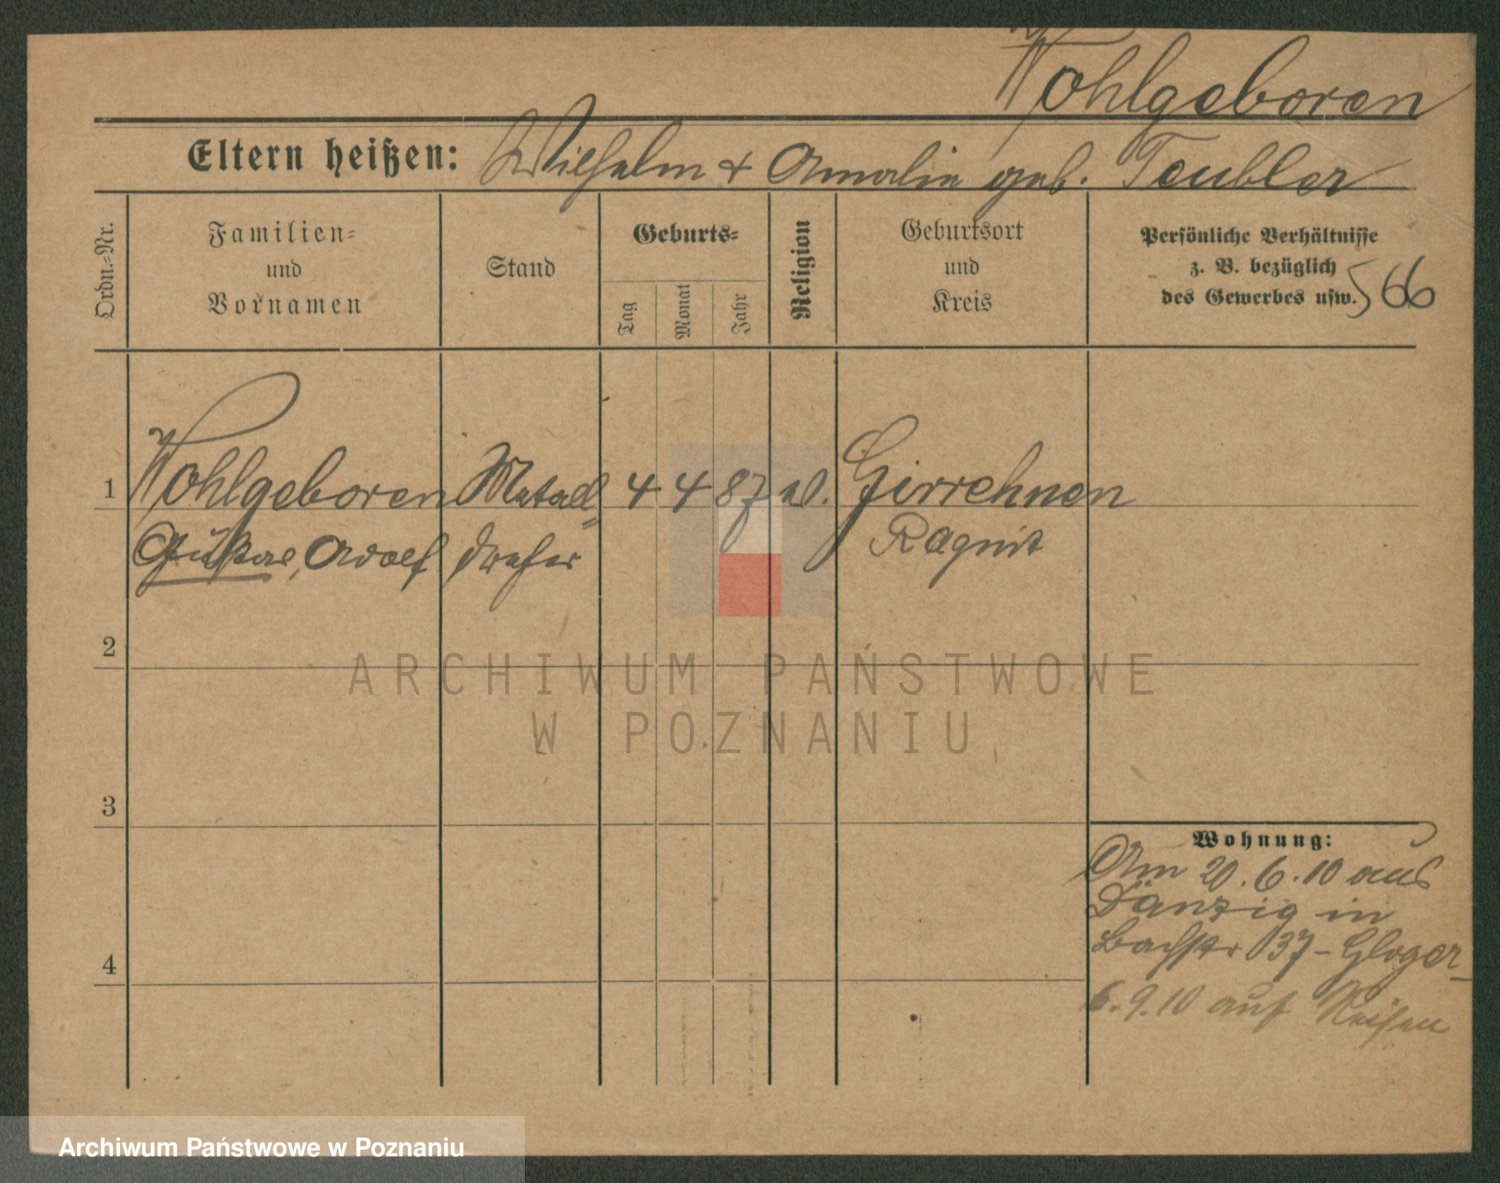 Wohlgeboren
Eltern heißen: Wilhelm + Amalie geb. Teubler
Ordn.=Nr.
Familien=
und
Vornamen
Stand
Geburts=
Tag
Monat
Jahr
Religion
Geburtsort
und
Kreis
Persönliche Verhältnisse
z. B. bezüglich
des Gewerbes usw.
566
1 Wohlgeboren Metall= 4 4 87 Girrehnen
Gustav, Adolf dreher Ragnit
2
ARCHIWUM PAŃSTWOWE
W POZNANIU
3
Wohnung:
Am 20.6.10 aus
Danzig in
Bachstr 37 - Gloger -
4
6.9.10 auf Reisen
Archiwum Państwowe w Poznaniu